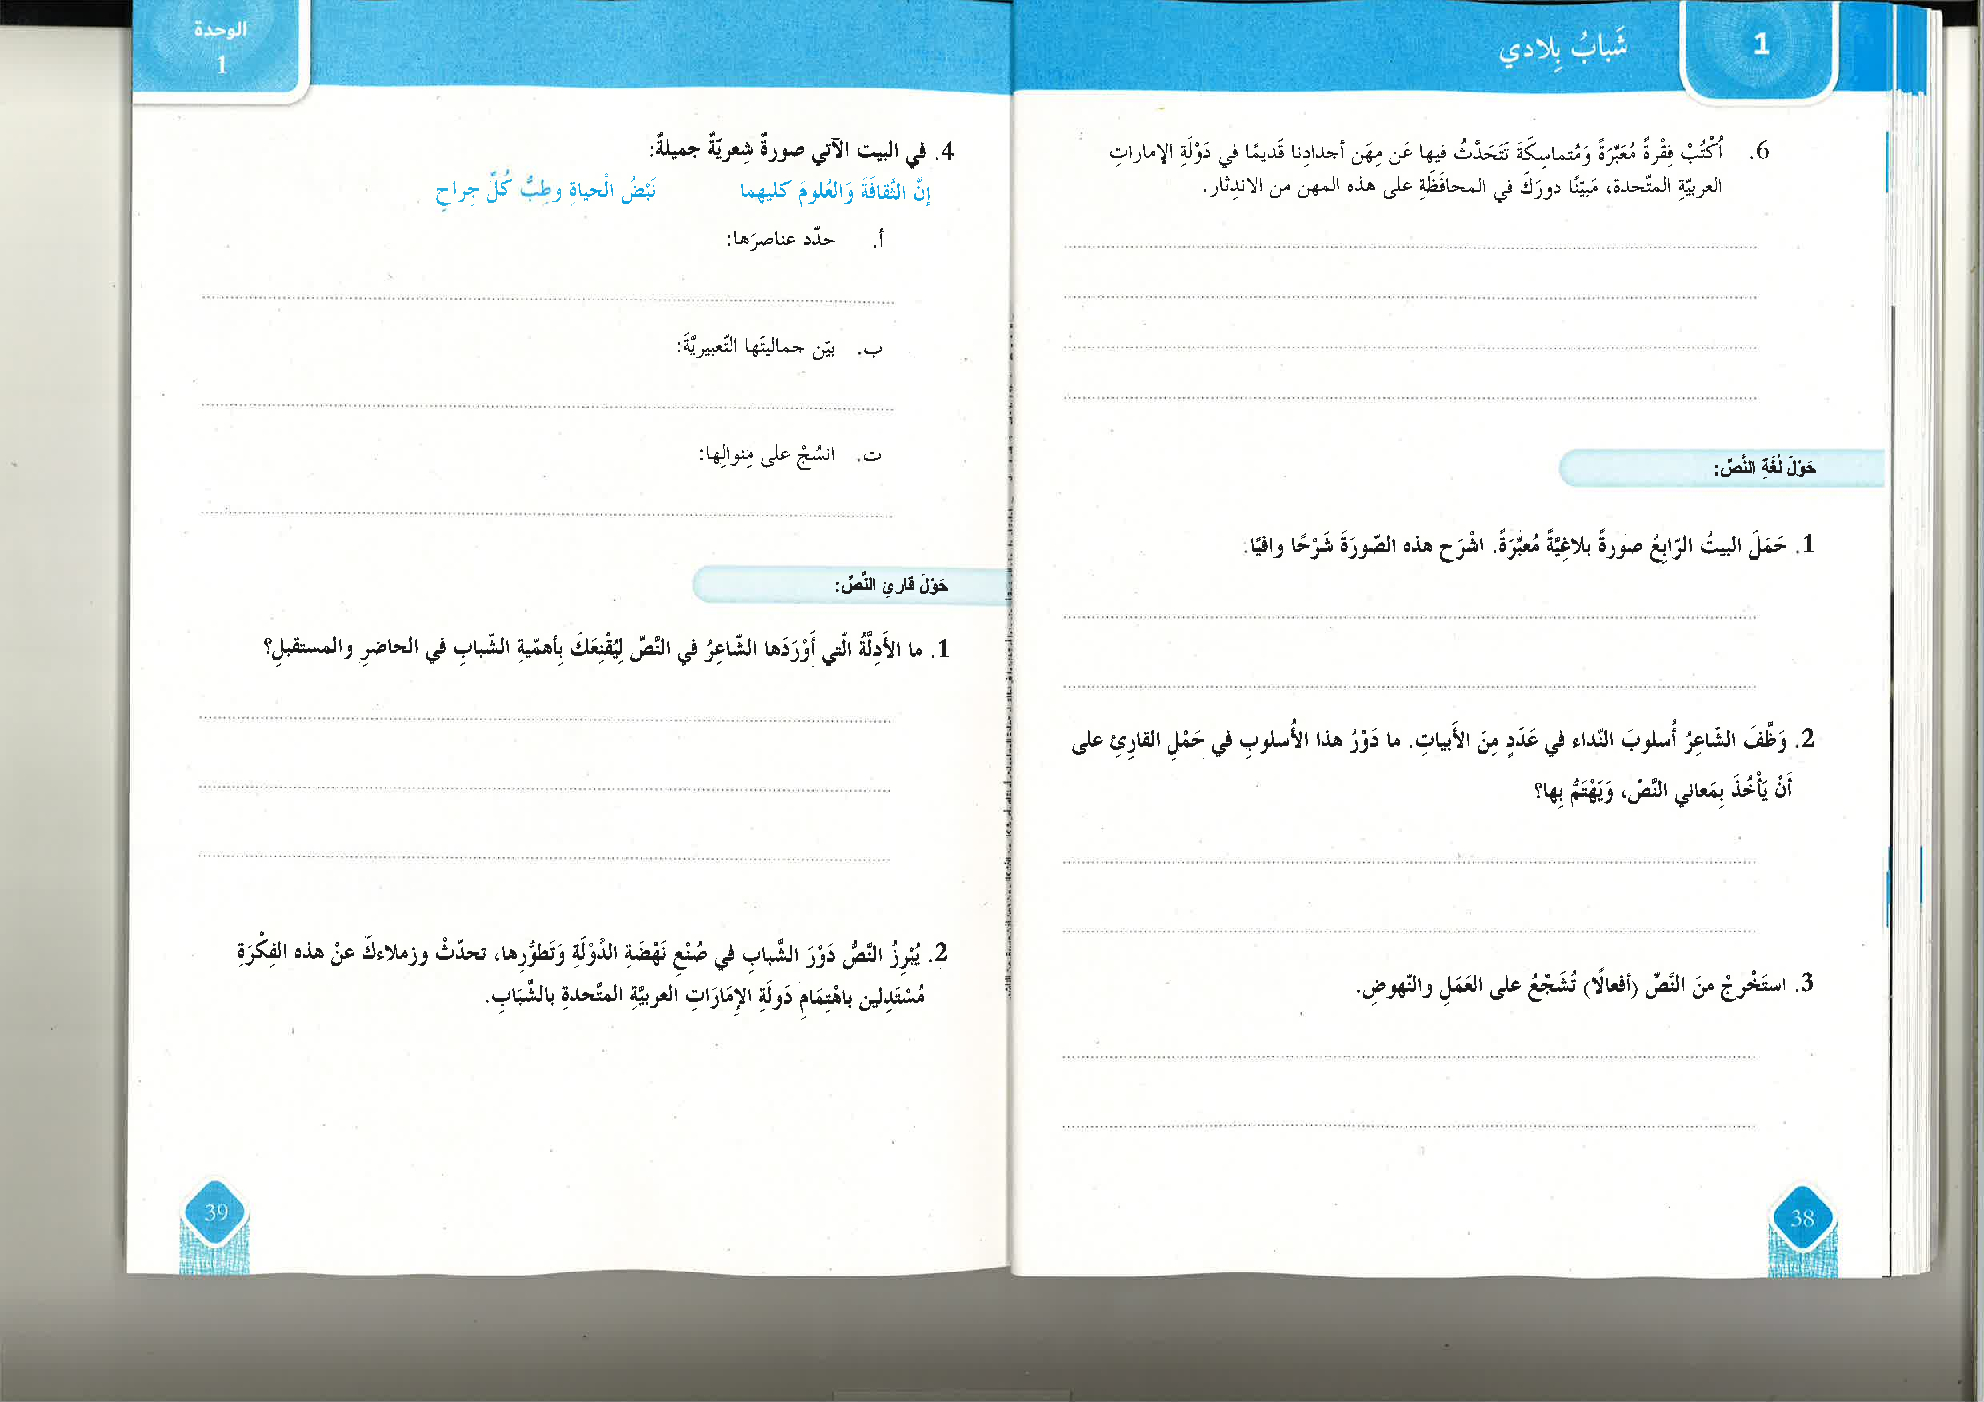 1
شَبابُ بِلادي
6. أكْتُبْ فِقْرةً مُعَبِّرَةً وَمُتماسِكَةَ تَتَحَدَّثُ فيها عَن مِهَن أجدادِنا قَديمًا في دَوْلَةِ الإماراتِ
العربيّةِ المتّحدة، مُبيّنًا دورَكَ في المحافَظَةِ على هذه المهن من الاندِثار.
حَوْلَ لُغَةِ النَّصِّ:
1. حَمَلَ البيتُ الرّابِعُ صورةً بلاغِيَّةً مُعبِّرَةً. اشْرَح هذه الصّورَةَ شَرْحًا وافيًا.
2. وَظَّفَ الشّاعِرُ أُسلوبَ النّداء في عَدَدٍ مِنَ الأَبياتِ. ما دَوْرُ هذا الأُسلوبِ في حَمْلِ القارِئِ على
أَنْ يَأْخُذَ بِمَعاني النَّصِّ، وَيَهْتَمَّ بِها؟
3. استَخْرِجْ منَ النَّصِّ (أفعالًا) تُشَجِّعُ على العَمَلِ والنّهوضِ.
38
الوحدة
1
4. في البيت الآتي صورةٌ شِعريّةٌ جميلةٌ:
إنَّ الثَّقافَةَ وَالعُلومَ كليهما نَبْضُ الْحياةِ وطِبُّ كُلِّ جِراحِ
أ. حدّد عناصرَها:
ب. بيّن جماليتَها التّعبيريَّةَ:
ت. انسُجْ على مِنوالِها:
حَوْلَ قارِئِ النَّصِّ:
1. ما الأَدِلَّةُ الّتي أَوْرَدَها الشّاعِرُ في النَّصّ لِيُقْنِعَكَ بِأهمّيةِ الشّبابِ في الحاضرِ والمستقبلِ؟
2. يُبْرِزُ النَّصُّ دَوْرَ الشَّبابِ في صُنْعِ نَهْضَةِ الدَّوْلَةِ وَتَطوُّرِها، تحدّثْ وزملاءكَ عنْ هذه الفِكْرَةِ
مُسْتَدِلين باهْتِمَامِ دَولَةِ الإِمَارَاتِ العربيَّةِ المتَّحدةِ بالشَّبَابِ.
39